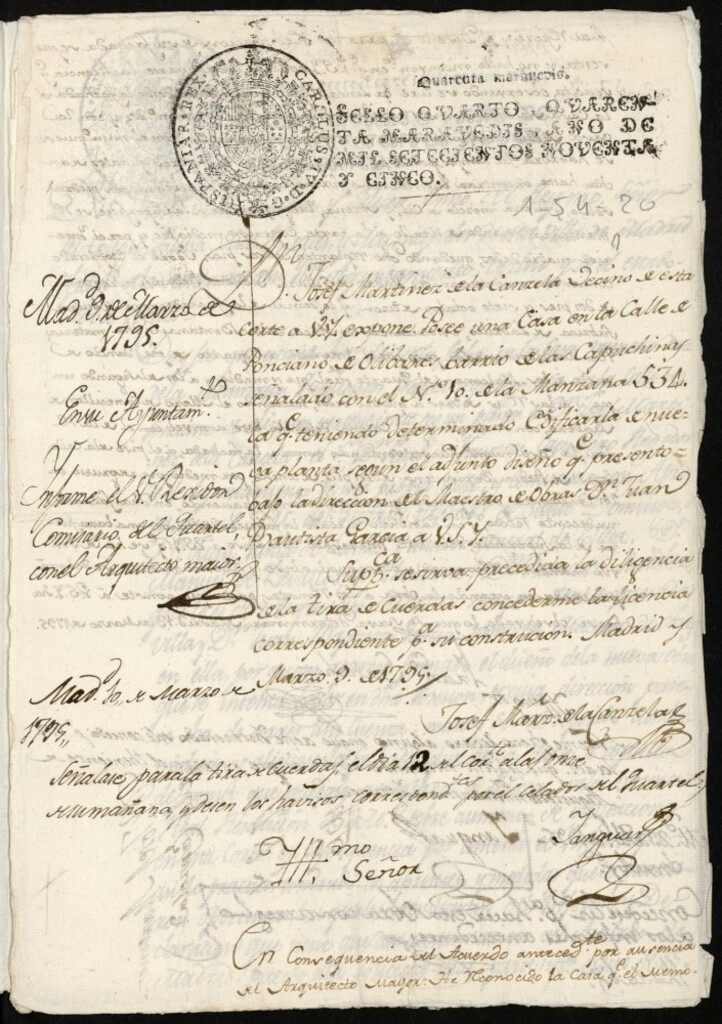 CAR·IIII·S·IV·D·G· HISPANIAR·REX·
Quarenta maravedis.
SELLO QVARTO, QVAREN-
TA MARAVEDIS, AÑO DE
MIL SETECIENTOS NOVENTA
Y CINCO.
1-54-26
D. Josef Martinez de la Canzela Vecino de esta
corte a V.S.Y. expone: Posee una Casa en la Calle de
Ponciano de Olibares barrio de las Capuchinas
señalado con el N.º 10. de la Manzana 534.
la q.e teniendo determinado Edificarla de nue-
va planta segun el adjunto diseño q.e presento
bajo la direccion del Maestro de Obras D.n Juan
Bautista Garcia a V.S.Y.
Sup.ca se sirva precedida la diligencia
de la tira de Cuerdas concederme la licencia
correspondiente p.a su construcion. Madrid y
Marzo 9. de 1795.
Josef Mart.z de la Canzela
Mad.d 9 de Marzo de
1795.
En su Ayuntam.to
Ynforme el S.r Regidor
Comisario del Quartel,
con el Arquitecto maior.
Mad.d 10,, de Marzo de
1795,,
Señalase para la tira de cuerdas el dia 12 del cor.te a las onze
de su mañana, y dense los havisos correspond.tes por el celador del Quartel
Yanguas
Yll.mo
Señor
En Consequencia del Acuerdo anteced.te por ausencia
del Arquitecto Mayor: He Reconocido la Casa q.e el Memo-